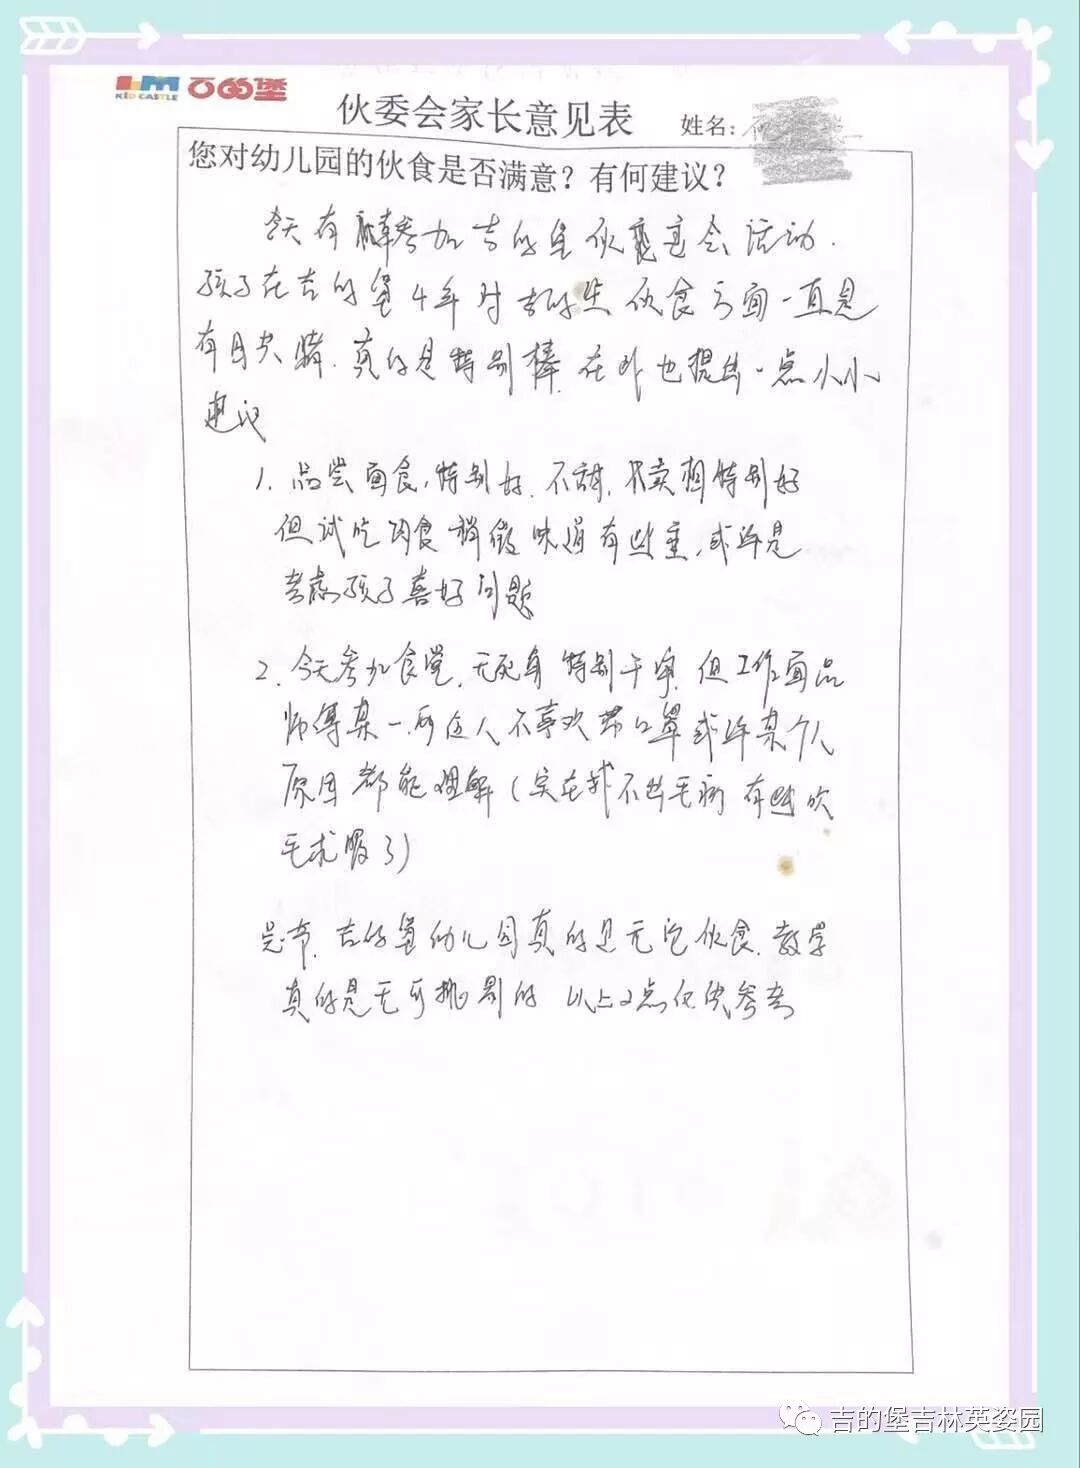 KID CASTLE 吉的堡
伙委会家长意见表 姓名：
您对幼儿园的伙食是否满意？有何建议？
今天有幸参加吉的堡伙委会活动.
孩子在吉的堡4年对吉的堡伙食方面一直是
有目共睹.真的是特别棒.在此也提出一点小小
建议
1.品尝面食,特别好.不甜,卖相特别好
但试吃肉食稍微味道有些重,或许是
考虑孩子喜好问题
2.今天参加食堂, 特别干净,但工作面品
师傅某一两位人不喜欢带口罩或许某个人
原因都能理解(实在找不出毛病有些吹
毛求 了)
总 ,吉的堡幼儿园真的是无论伙食.教学
真的是无可挑剔的 以上2点仅供参考
吉的堡吉林英姿园